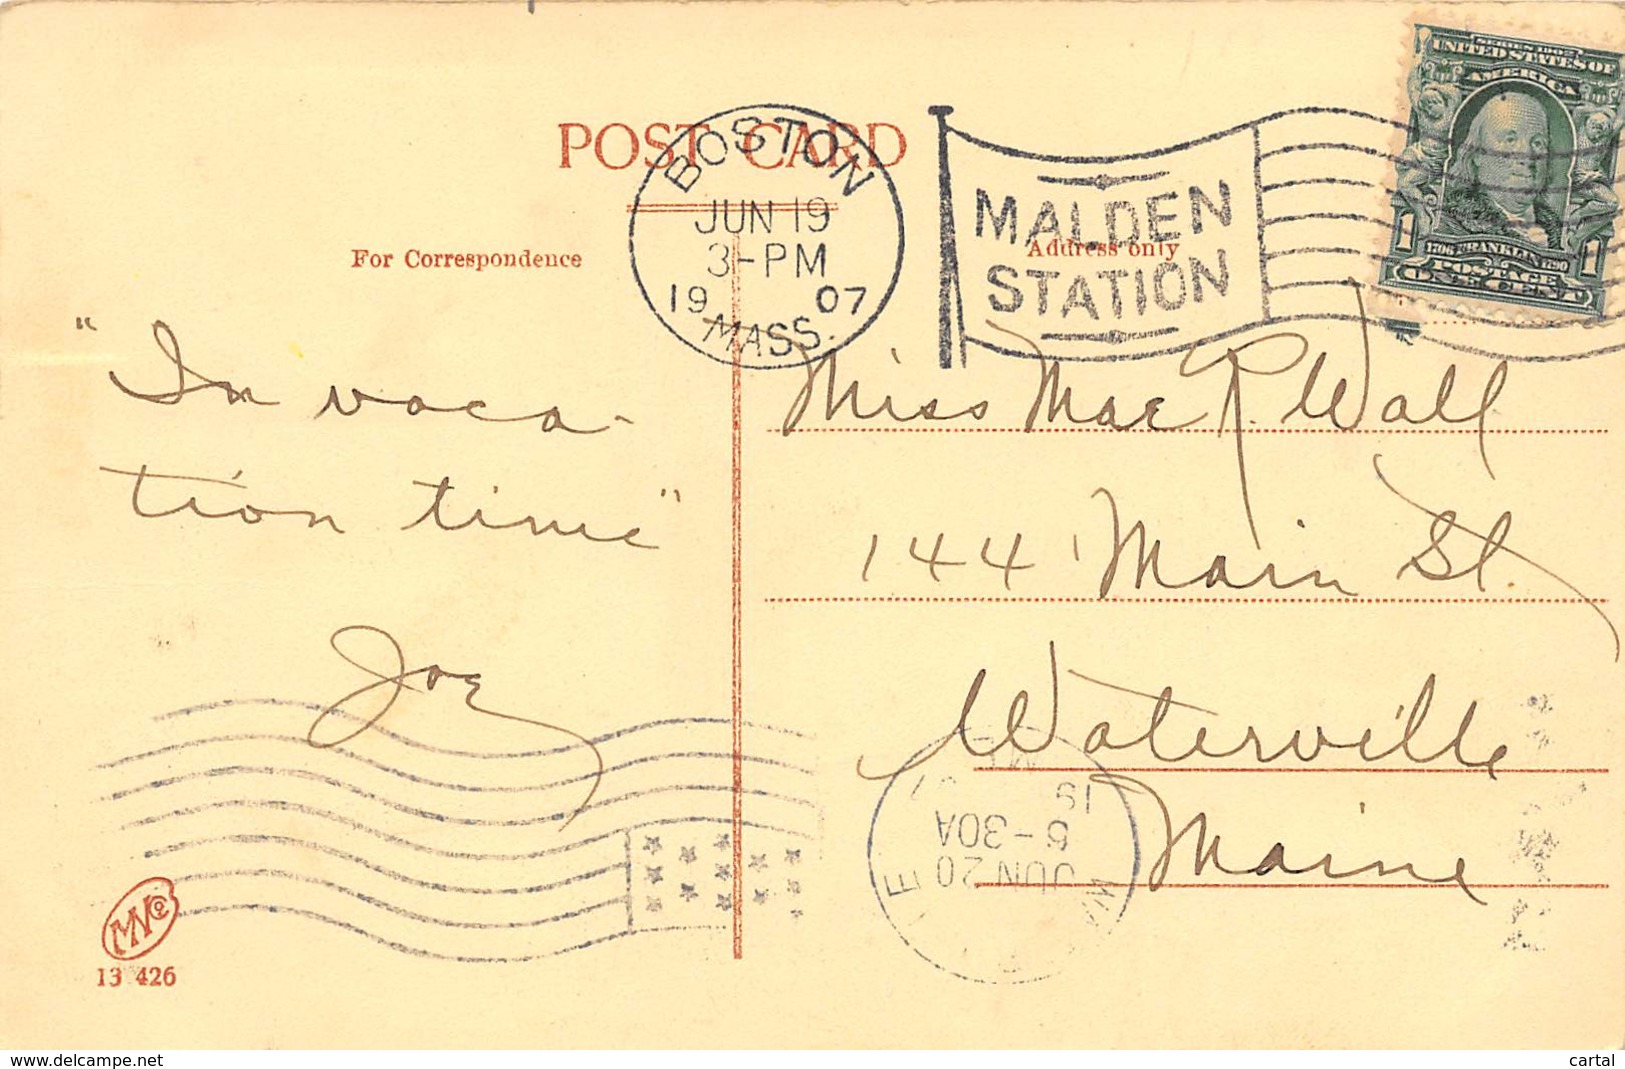 SERIES 1902
UNITED STATES OF
AMERICA
1 1
1706 FRANKLIN 1790
POSTAGE
ONE CENT
POST CARD
BOSTON
JUN 19
3-PM
19 07
MASS.
MALDEN
STATION
For Correspondence
Address only
"In voca-
tion time"
Joe
Miss Mae R. Wall
144 Main St.
Waterville
Maine
JUN 20
-30A
19
MNCo
13 426
www.delcampe.net
cartal